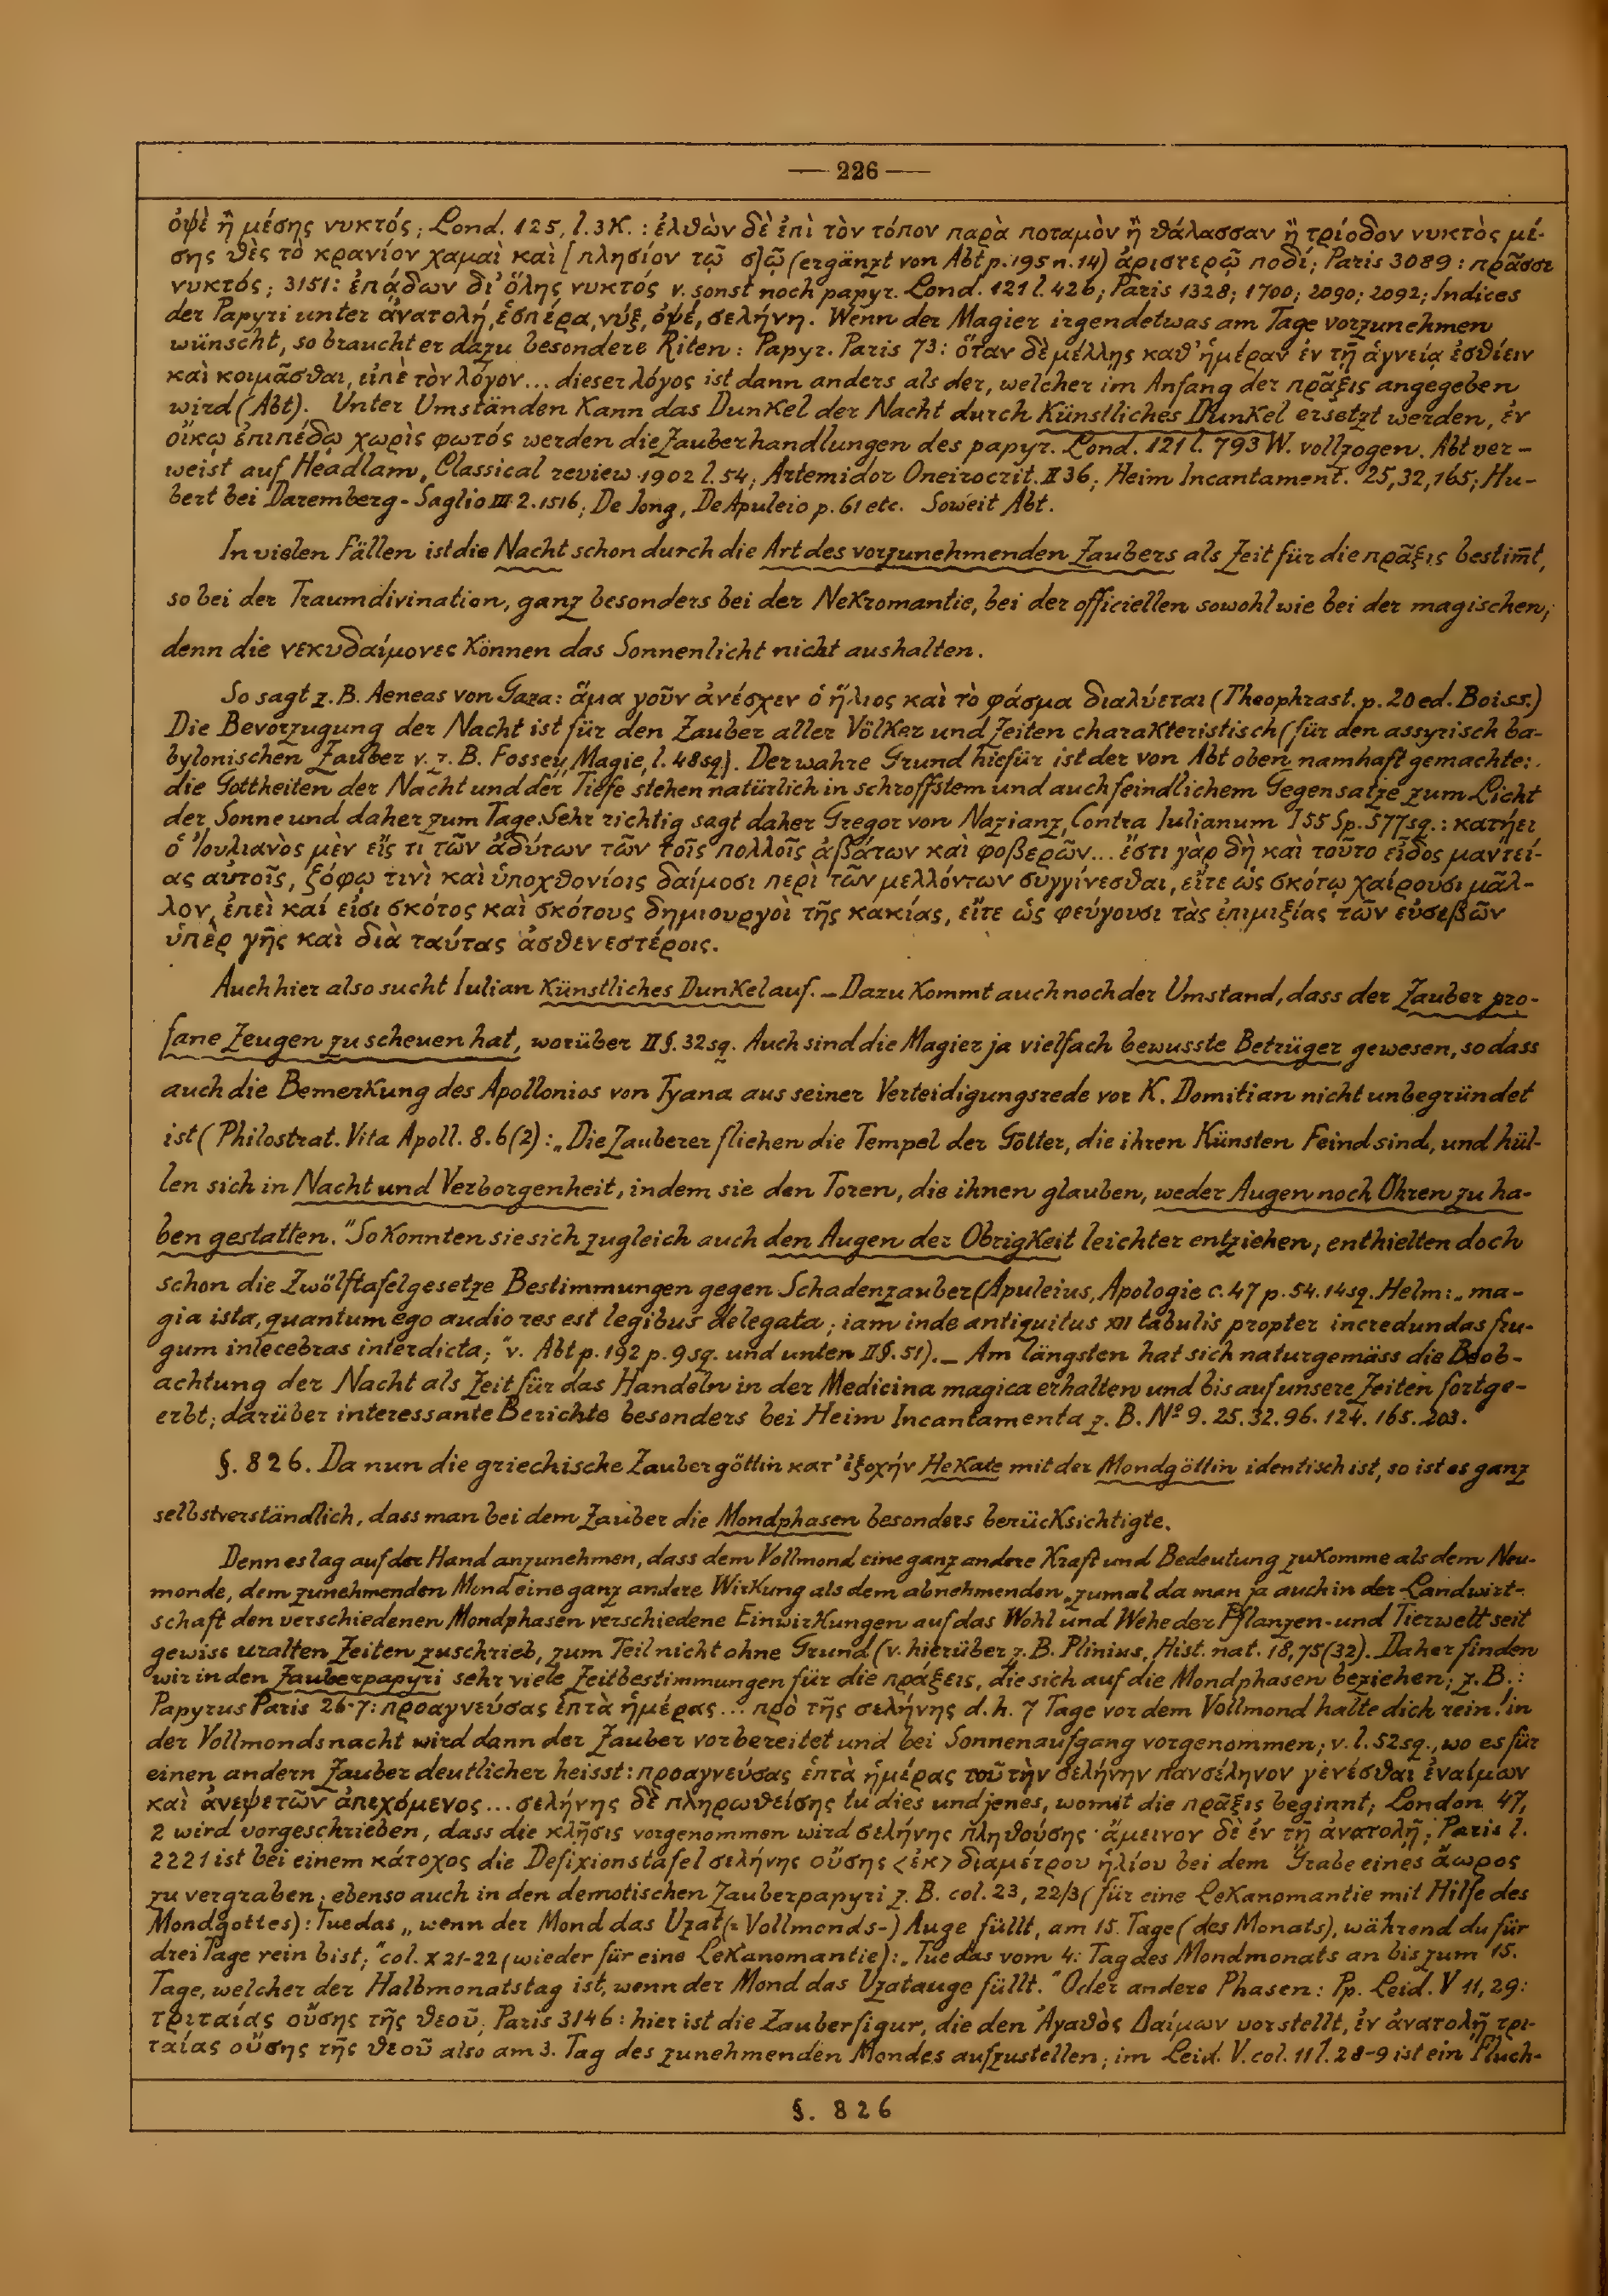 — 226 —
ὀψὲ ἢ μέσης νυκτός; Lond. 125, l. 3 K. : ἐλθὼν δὲ ἐπὶ τὸν τόπον παρὰ ποταμὸν ἢ θάλασσαν ἢ τρίοδον νυκτὸς μέ-
σης θὲς τὸ κρανίον χαμαὶ καὶ [πλησίον τῷ σ]ῷ (ergänzt von Abt p. 195 n. 14) ἀριστερῷ ποδί; Paris 3089 : πρᾶσσε
νυκτός; 3151: ἐπᾴδων δι' ὅλης νυκτός v. sonst noch papyr. Lond. 121 l. 426; Paris 1328; 1700; 2090; 2092; Indices
der Papyri unter ἀνατολή, ἑσπέρα, νύξ, ὀψέ, σελήνη. Wenn der Magier irgendetwas am Tage vorzunehmen
wünscht, so braucht er dazu besondere Riten: Papyr. Paris 73: ὅταν δὲ μέλλῃς καθ' ἡμέραν ἐν τῇ ἁγνείᾳ ἐσθίειν
καὶ κοιμᾶσθαι, εἰπὲ τὸν λόγον... dieser λόγος ist dann anders als der, welcher im Anfang der πρᾶξις angegeben
wird (Abt). Unter Umständen kann das Dunkel der Nacht durch künstliches Dunkel ersetzt werden, ἐν
οἴκῳ ἐπιπέδῳ χωρὶς φωτός werden die Zauberhandlungen des papyr. Lond. 121 l. 793 W. vollzogen. Abt ver-
weist auf Headlam, Classical review 1902 l. 54; Artemidor Oneirocrit. II 36; Heim Incantament. 25, 32, 165; Hu-
bert bei Daremberg-Saglio III 2. 1516; De Jong, De Apuleio p. 61 etc. Soweit Abt.
In vielen Fällen ist die Nacht schon durch die Art des vorzunehmenden Zaubers als Zeit für die πρᾶξις bestim̄t,
so bei der Traumdivination, ganz besonders bei der Nekromantie, bei der officiellen sowohl wie bei der magischen;
denn die νεκυδαίμονες können das Sonnenlicht nicht aushalten.
So sagt z. B. Aeneas von Gaza: ἅμα γοῦν ἀνέσχεν ὁ ἥλιος καὶ τὸ φάσμα διαλύεται (Theophrast. p. 20 ed. Boiss.)
Die Bevorzugung der Nacht ist für den Zauber aller Völker und Zeiten charakteristisch (für den assyrisch ba-
bylonischen Zauber v. z. B. Fossey, Magie, l. 48 sq.). Der wahre Grund hiefür ist der von Abt oben namhaft gemachte:
die Gottheiten der Nacht und der Tiefe stehen natürlich in schroffstem und auch feindlichem Gegensatze zum Licht
der Sonne und daher zum Tage. Sehr richtig sagt daher Gregor von Nazianz, Contra Iulianum I 55 Sp. 577 sq.: κατῄει
ὁ Ἰουλιανὸς μὲν εἴς τι τῶν ἀδύτων τῶν τοῖς πολλοῖς ἀβάτων καὶ φοβερῶν... ἔστι γὰρ δὴ καὶ τοῦτο εἶδος μαντεί-
ας αὐτοῖς, ζόφῳ τινὶ καὶ ὑποχθονίοις δαίμοσι περὶ τῶν μελλόντων συγγίνεσθαι, εἴτε ὡς σκότῳ χαίρουσι μᾶλ-
λον, ἐπεὶ καί εἰσι σκότος καὶ σκότους δημιουργοὶ τῆς κακίας, εἴτε ὡς φεύγουσι τὰς ἐπιμιξίας τῶν εὐσεβῶν
ὑπὲρ γῆς καὶ διὰ ταύτας ἀσθενεστέροις.
Auch hier also sucht Iulian künstliches Dunkel auf. – Dazu kommt auch noch der Umstand, dass der Zauber pro-
fane Zeugen zu scheuen hat, worüber II §. 32 sq. Auch sind die Magier ja vielfach bewusste Betrüger gewesen, so dass
auch die Bemerkung des Apollonios von Tyana aus seiner Verteidigungsrede vor K. Domitian nicht unbegründet
ist (Philostrat. Vita Apoll. 8. 6 (2): „Die Zauberer fliehen die Tempel der Götter, die ihren Künsten Feind sind, und hül-
len sich in Nacht und Verborgenheit, indem sie den Toren, die ihnen glauben, weder Augen noch Ohren zu ha-
ben gestatten." So konnten sie sich zugleich auch den Augen der Obrigkeit leichter entziehen; enthielten doch
schon die Zwölftafelgesetze Bestimmungen gegen Schadenzauber (Apuleius, Apologie c. 47 p. 54. 14 sq. Helm: „ma-
gia ista, quantum ego audio res est legibus delegata; iam inde antiquitus XII tabulis propter incredundas fru-
gum inlecebras interdicta;" v. Abt p. 192 p. 9 sq. und unten II §. 51). – Am längsten hat sich naturgemäss die Beob-
achtung der Nacht als Zeit für das Handeln in der Medicina magica erhalten und bis auf unsere Zeiten fortge-
erbt; darüber interessante Berichte besonders bei Heim Incantamenta z. B. Nº 9. 25. 32. 96. 124. 165. 203.
§. 826. Da nun die griechische Zaubergöttin κατ' ἐξοχήν Hekate mit der Mondgöttin identisch ist, so ist es ganz
selbstverständlich, dass man bei dem Zauber die Mondphasen besonders berücksichtigte.
Denn es lag auf der Hand anzunehmen, dass dem Vollmond eine ganz andere Kraft und Bedeutung zukomme als dem Neu-
monde, dem zunehmenden Mond eine ganz andere Wirkung als dem abnehmenden, zumal da man ja auch in der Landwirt-
schaft den verschiedenen Mondphasen verschiedene Einwirkungen auf das Wohl und Wehe der Pflanzen- und Tierwelt seit
gewiss uralten Zeiten zuschrieb, zum Teil nicht ohne Grund (v. hierüber z. B. Plinius, Hist. nat. 18, 75 (32). Daher finden
wir in den Zauberpapyri sehr viele Zeitbestimmungen für die πράξεις, die sich auf die Mondphasen beziehen; z. B.:
Papyrus Paris 26-7: προαγνεύσας ἑπτὰ ἡμέρας... πρὸ τῆς σελήνης d. h. 7 Tage vor dem Vollmond halte dich rein! in
der Vollmondsnacht wird dann der Zauber vorbereitet und bei Sonnenaufgang vorgenommen; v. l. 52 sq., wo es für
einen andern Zauber deutlicher heisst: προαγνεύσας ἑπτὰ ἡμέρας τοῦ τὴν σελήνην πανσέληνον γενέσθαι ἐναίμων
καὶ ἀνεψετῶν ἀπεχόμενος... σελήνης δὲ πληρωθείσης tu dies und jenes, womit die πρᾶξις beginnt; London 47,
2 wird vorgeschrieben, dass die κλῆσις vorgenommen wird σελήνης πληθούσης · ἄμεινον δὲ ἐν τῇ ἀνατολῇ; Paris l.
2221 ist bei einem κάτοχος die Defixionstafel σελήνης οὔσης <ἐκ> διαμέτρου ἡλίου bei dem Grabe eines ἄωρος
zu vergraben; ebenso auch in den demotischen Zauberpapyri z. B. col. 23, 22/3 (für eine Lekanomantie mit Hilfe des
Mondgottes): Tue das „wenn der Mond das Uzat (= Vollmonds-) Auge füllt, am 15. Tage (des Monats), während du für
drei Tage rein bist;" col. X 21-22 (wieder für eine Lekanomantie): „Tue das vom 4. Tag des Mondmonats an bis zum 15.
Tage, welcher der Halbmonatstag ist, wenn der Mond das Uzatauge füllt." Oder andere Phasen: Pp. Leid. V 11, 29:
τριταίας οὔσης τῆς θεοῦ; Paris 3146: hier ist die Zauberfigur, die den Ἀγαθὸς Δαίμων vorstellt, ἐν ἀνατολῇ τρι-
ταίας οὔσης τῆς θεοῦ also am 3. Tag des zunehmenden Mondes aufzustellen; im Leid. V. col. 11 l. 28-9 ist ein Fluch-
§. 826